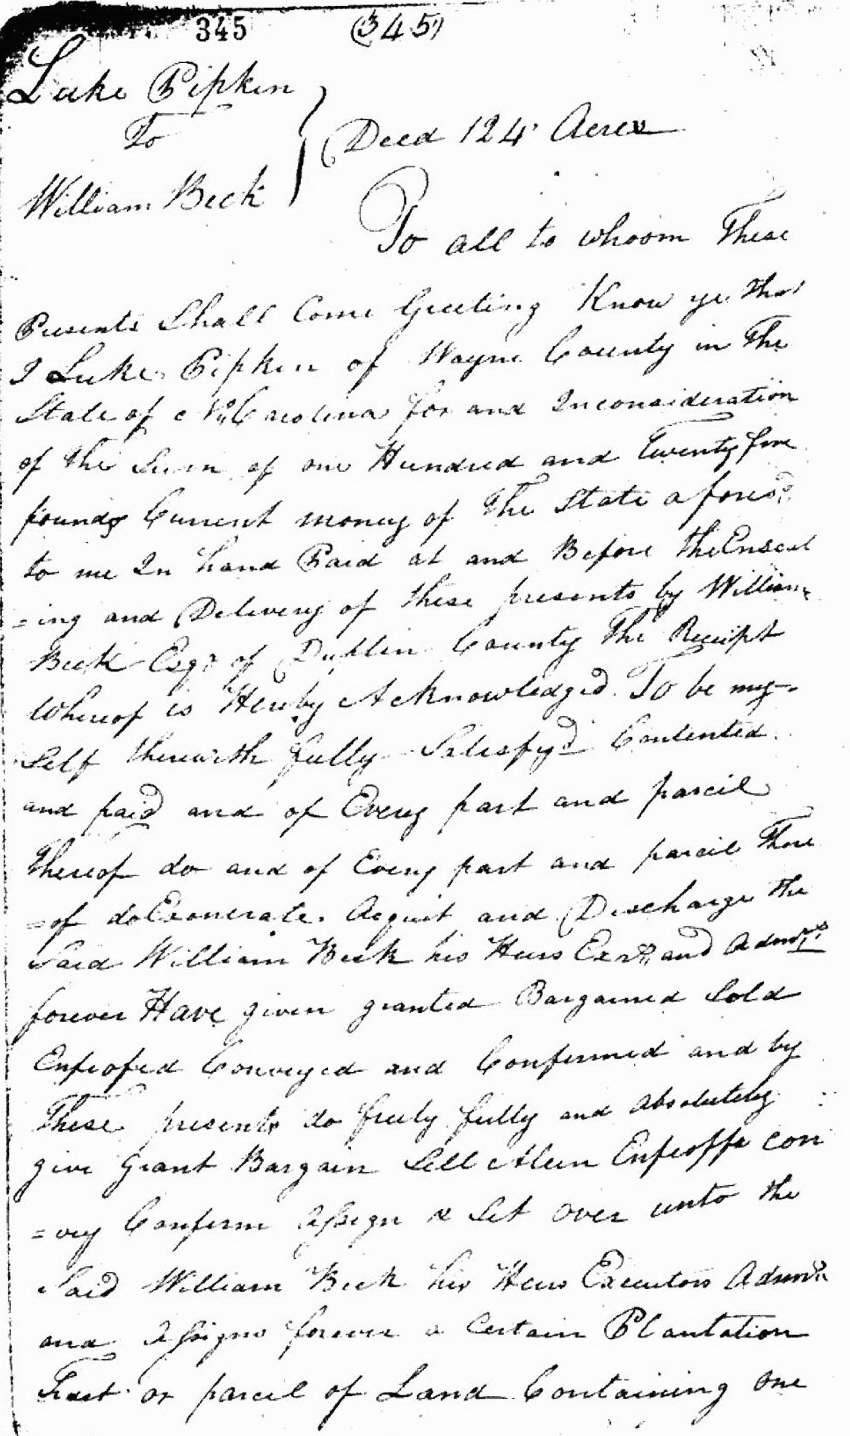 345 (345)
Luke Pipkin
To
Deed 124 Acres
William Beck
To all to whoom These
Presents Shall Come Greeting Know ye that
I Luke Pipkin of Wayne County in The
State of No Carolina for and Inconsideration
of the Sum of one Hundred and Twenty five
pounds Current money of The State afores'd
to me In hand Paid at and Before the Enseal
=ing and Delivery of these presents by William
Beck Esqr of Duplin County The Receipt
Whereof is Hereby Acknowledged To be my-
Self therewith fully Satisfy'd Contented
and paid and of Every part and parcil
Thereof do and of Every part and parcil There
=of do Exonerate Acquit and Discharge the
Said William Beck his Heirs Exrs and Admrs
forever Have given granted Bargained Sold
Enfeofed Conveyed and Confirmed and by
These presents do freely fully and absolutely
give Grant Bargain Sell Alein Enfeoffe con
=vey Confirm Assign & Set over unto the
Said William Beck his Heirs Executors Admrs
and Assigns forever a Certain Plantation
Tract or parcel of Land Containing one